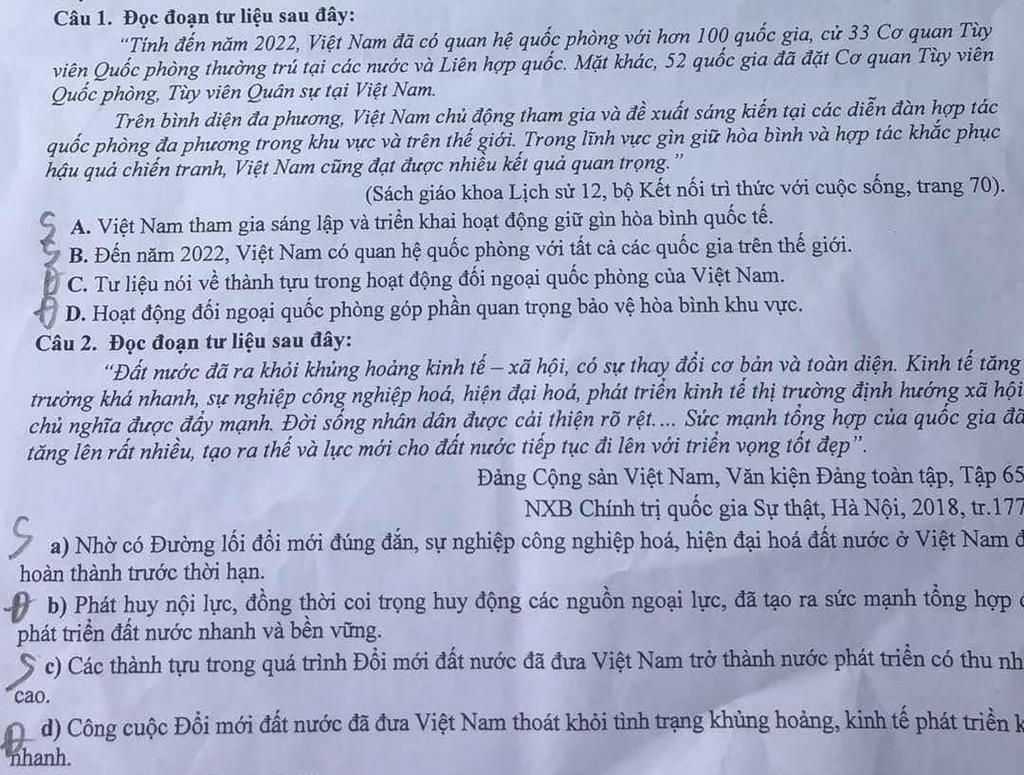 Câu 1. Đọc đoạn tư liệu sau đây:
"Tính đến năm 2022, Việt Nam đã có quan hệ quốc phòng với hơn 100 quốc gia, cử 33 Cơ quan Tùy
viên Quốc phòng thường trú tại các nước và Liên hợp quốc. Mặt khác, 52 quốc gia đã đặt Cơ quan Tùy viên
Quốc phòng, Tùy viên Quân sự tại Việt Nam.
Trên bình diện đa phương, Việt Nam chủ động tham gia và đề xuất sáng kiến tại các diễn đàn hợp tác
quốc phòng đa phương trong khu vực và trên thế giới. Trong lĩnh vực gìn giữ hòa bình và hợp tác khắc phục
hậu quả chiến tranh, Việt Nam cũng đạt được nhiều kết quả quan trọng."
(Sách giáo khoa Lịch sử 12, bộ Kết nối trì thức với cuộc sống, trang 70).
S A. Việt Nam tham gia sáng lập và triển khai hoạt động giữ gìn hòa bình quốc tế.
S B. Đến năm 2022, Việt Nam có quan hệ quốc phòng với tất cả các quốc gia trên thế giới.
Đ C. Tư liệu nói về thành tựu trong hoạt động đối ngoại quốc phòng của Việt Nam.
Đ D. Hoạt động đối ngoại quốc phòng góp phần quan trọng bảo vệ hòa bình khu vực.
Câu 2. Đọc đoạn tư liệu sau đây:
"Đất nước đã ra khỏi khủng hoảng kinh tế – xã hội, có sự thay đổi cơ bản và toàn diện. Kinh tế tăng
trưởng khá nhanh, sự nghiệp công nghiệp hoá, hiện đại hoá, phát triển kinh tế thị trường định hướng xã hội
chủ nghĩa được đẩy mạnh. Đời sống nhân dân được cải thiện rõ rệt.... Sức mạnh tổng hợp của quốc gia đã
tăng lên rất nhiều, tạo ra thế và lực mới cho đất nước tiếp tục đi lên với triển vọng tốt đẹp".
Đảng Cộng sản Việt Nam, Văn kiện Đảng toàn tập, Tập 65
NXB Chính trị quốc gia Sự thật, Hà Nội, 2018, tr.177
S a) Nhờ có Đường lối đổi mới đúng đắn, sự nghiệp công nghiệp hoá, hiện đại hoá đất nước ở Việt Nam
hoàn thành trước thời hạn.
Đ b) Phát huy nội lực, đồng thời coi trọng huy động các nguồn ngoại lực, đã tạo ra sức mạnh tổng hợp
phát triển đất nước nhanh và bền vững.
S c) Các thành tựu trong quá trình Đổi mới đất nước đã đưa Việt Nam trở thành nước phát triển có thu nh
cao.
Đ d) Công cuộc Đổi mới đất nước đã đưa Việt Nam thoát khỏi tình trạng khủng hoảng, kinh tế phát triển
nhanh.